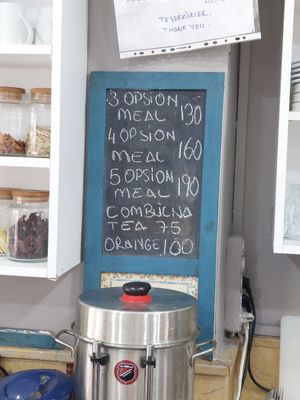 TEŞEKKÜRLER.
THANK YOU.
3 OPSION
MEAL 130
4 OPSION
MEAL 160
5 OPSION
MEAL 190
COMBUCHA
TEA 75
ORANGE 100